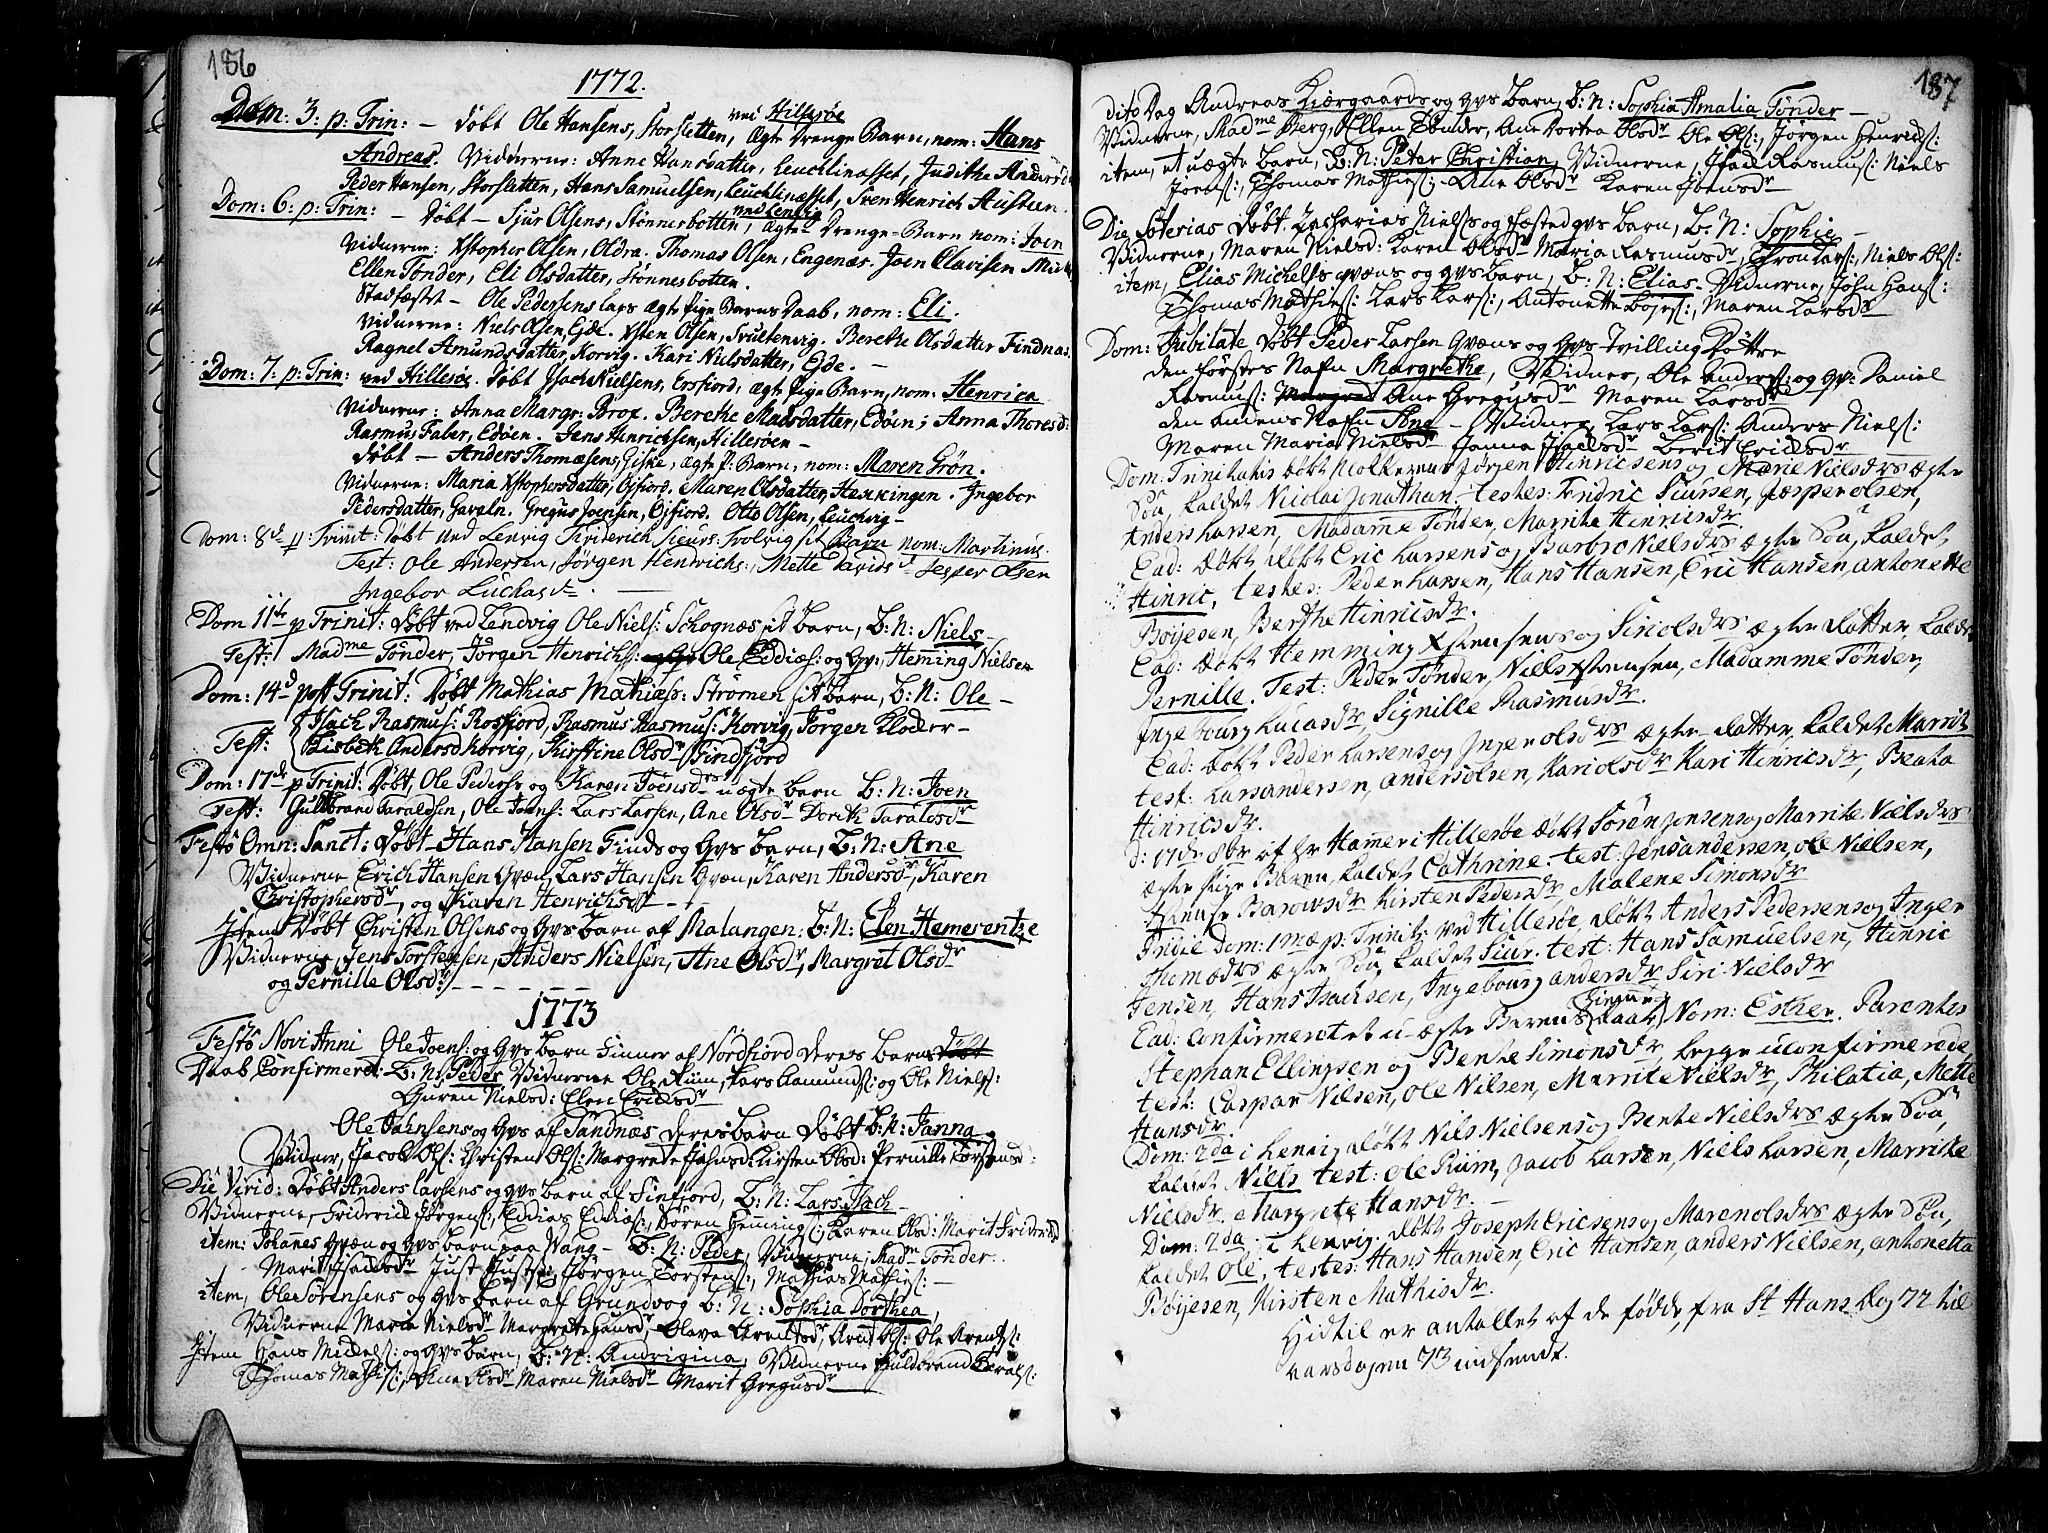 186
1772.
Dom: 3: p: Trin: – Döbt Ole Hansens, Storsletten, ved Hillesöe ægte Drenge Barn, nom: Hans
Andreas. Vidnerne: Anne Hansdatter, Leuchlinasset, Judithe Andersd
Peder Hansen, Storsletten, Hans Samuelsen, Leuchlinæsset, Sven Henrich Austeen.
Dom: 6: p: Trin: – Döbt – Sjur Olsens, Stönnerbotten, ved Lenvig ægte Drenge-Barn nom: Joen
Vidnerne: Xstopher Olsen, Oldra. Thomas Olsen, Engenæs. Joen Clavisen
Ellen Tönder, Eli Olsdatter, Stönnesbotten.
Stadfæstet – Ole Pedersens ægte Pige Barns Daab, nom: Eli.
Vidnerne: Niels Olsen, Ejde. Xsten Olsen, Berethe Olsdatter Findnæs.
Ragnel Amundsdatter, Korvig. Kari Nielsdatter, Ejde. –
Dom: 7: p: Trin: ved Hillesöe. Döbt Isach Nielsens, Ersfiord, ægte Pige Barn, nom: Henrica
Vidnerne: Anna Margr: Brox. Berethe Madsdatter, Edöen; Anna Thoresd:
Rasmus Faber, Edöen. Jens Henrichsen, Hillesöen –
Döbt – Anders Thomæsens, Giske, ægte P: Barn, nom: Maren Grön.
Vidnerne: Maria Xstophersdatter, Öjfiord. Maren Olsdatter, Hekkingen. Ingebor
Pedersdatter, Gavaln. Gregus Joensen, Öjfiord. Otto Olsen, Leuchvig –
Dom: 8d p: Trinit: Döbt ved Lenvig Friderich Sieurs: Trolvig sit Barn nom: Martinus.
Test: Ole Andersen, Jörgen Hendrichs:, Mette Davids d Jesper Olsen
Ingebor Luchas dr.
Dom 11te p Trinit: Döbt ved Lendvig Ole Niels: Schognæs sit Barn, B: N: Niels –
Test: Madme Tönder, Jörgen Henrichs: Ole Eddiæs: og Hv:, Heming Nielsen
Dom: 14d post Trinit: Döbt Mathias Mathiæs: Strömen sit Barn, B: N: Ole –
Test: Isach Rasmus: Rosfiord, Rasmus Rasmus: Korvig, Jörgen Kloder –
Lisbeth Andersd Korvig, Kirstine Olsdr Findfjord
Dom: 17de p Trinit: Döbt, Ole Peders: og Karen Joensdrs uægte Barn B: N: Joen
Test: Guldbrand Taraldsen, Ole Joens: Lars Larsen, Ane Olsdr Dorith Taraldsdr
Festö Omn: Sanct: Döbt – Hans Hansen Finds og Hvs Barn, B: N: Ane
Vidnerne Erich Hansen Qvæn, Lars Hansen Qvæn, Karen Andersdr, Karen
Christophersdr, og Karen Henrichsdr –
Item Döbt Christen Olsens og Hvs Barn af Malangen, B: N: Elen Hemerentze
Vidnerne, Jens Torstensen, Anders Nielsen, Ane Olsdr, Margret Olsdr
og Pernille Olsdr –
1773
Festo Novi Anni Ole Joens: og Hvs Barn Finner af Nordfiord Deres Barns Döbt
Daab Confirmeret B: N: Peder Vidnerne Ole Riim, Lars Aamunds: og Ole Niels:
Guren Nielsd: Elen Ericksdr
Ole Jahnsens og Hvs af Sandnæs Deres Barn Döbt B: N: Janna
Vidner, Jacob Ols: Christen Ols: Margrete Johnsd: Kirsten Olsd: Pernille Torstensd:
Die Virid: Döbt Anders Larsens og Hvs Barn af Finfiord, B: N: Lars Isach –
Vidnerne, Friderick Jörgens:, Eddias Eddias:, Sören Hemings:, Karen Olsd: Marit Friderichsd
item: Johannes Qvæn og Hvs Barn paa Vang – B: N: Peder, Vidnerne, Madme Tönder.
Marit Isacksdr Just Justs:, Jörgen Torstens:, Mathias Mathies: –
item, Ole Sörensens og Hvs Barn af Grundvog B: N: Sophia Dorthea,
Vidnerne Maria Nielsdr Margrethe Hansdr, Olava Arentsdr, Arnt Ols: Ole Arents:
Item Hans Mickels: og Hvs Barn, B: N: Andrigina, Vidnerne Guldbrand Tarals:
Thomas Mathis:, Ane Olsdr Maren Nielsdr Marit Gregusdr
187
dito Dag Andreas Kiærgaards og Hvs Barn, B: N: Sophia Amalia Tönder –
Vidnerne, Madme Berg, Ellen Tönder, Ane Dortea Olsdr Ole Ols:, Jörgen Henrichs:
item, et uægte Barn, B: N: Peter Christian, Vidnerne, Isack Rasmus: Niels
Joens:, Thomas Mathies:, Ane Olsdr Karen Joensdr
Die Soterias Döbt Zacharias Niels: og Hvs Barn, B: N: Sophie –
Vidnerne, Maren Nielsd: Karen Olsdr Maria Rasmusdr, Thron Lars:, Niels Ols:
item, Elias Michells Qvæns og Hvs Barn, B: N: Elias. Vidnerne, John Hans:
Thomas Mathies: Lars Lars:, Antonette Bojes:, Maren Larsdr
Dom: Jubilate Döbt Peder Larsen Qvæns og Hvs Tvilling Döttre
den förstes Nafn Margrethe, Vidner, Ole Anders: og Hv: Daniel
Rasmus: Margred Ane Gregusdr Maren Larsdr
den andens Nafn Töne – Vidner Lars Lars: Anders Niels:
Maren Maria Nielsdr Janna Isacksdr Berit Ericksdr
Dom: Trinitatis Döbt Jörgen Hinricsens og Marie Nielsdrs ægte
Sön, kaldet Nicolai Jonathan. Testes: Fridric Siursen, Jæsper Olsen,
Anders Larsen, Madame Tönder, Marrite Hinricsdr.
Ead: Döbt Döbt Eric Larsens og Barbro Nielsdrs ægte Sön, kaldet
Hinric, Testes: Peder Larsen, Hans Hansen, Eric Hansen, Antonette
Böijesen, Berthe Hinricsdr.
Ead: Döbt Hemming Xstensens og Siri Olsdrs ægte Datter kaldt
Pernille. Test: Peder Tönder, Niels Xstensen, Madamme Tönder,
Ingebourg Lucasdr, Signille Rasmusdr.
Ead: Döbt Peder Larsens og Inger Olsdrs ægte Datter, kaldet Marrit
test: Lars Andersen, Anders Olsen, Kari Olsdr Kari Hinricsdr, Beata
Hinricsdr.
d: 17de 8br af Hr Hameri Hillesöe Döbt Sören Jonsens og Marrite Nielsdrs
ægte Pige Baren, kaldet Cathrine. test: Jens Andersen, Ole Nielsen,
Kirsten Pedersdr, Malene Simonsdr
Indil Dom: 1mæ p: Trinit: ved Hillesöe, Döbt Anders Pedersens og Inger
Thomædrs ægte Sön kaldet Siur. test: Hans Samuelsen, Hinric
Jensen, Hans Isachsen, Ingebourg Andersdr Siri Nielsdr
Ead: Confirmeret et u-ægte Barens Daab, Nom: Esther. Parentes
Stephan Ellingsen og Bente Simonsdr, begge uconfirmerede
test: Caspar Nilsen, Ole Nilsen, Marrite Nielsdr, Philatia, Mette
Hansdr.
Dom: 2da i Lenvig, Döbt Nils Nielsens og Bente Nielsdrs ægte Sön,
kaldet Niels test: Ole Riim, Jacob Larsen, Niels Larsen, Marrite
Nielsdr. Margrete Hansdr. –
Dom: 2da i Lenvig. Döbt Joseph Ericsens og Maren Olsdrs ægte Sön,
kaldet Ole, testes: Hans Hansen, Eric Hansen, Anders Nielsen, Antonetta
Böijesen, Kirsten Mathisdr.
Hidtil er antallet af de födde, fra St Hans Dag 72 til
aarsdagen 73 indsendt.